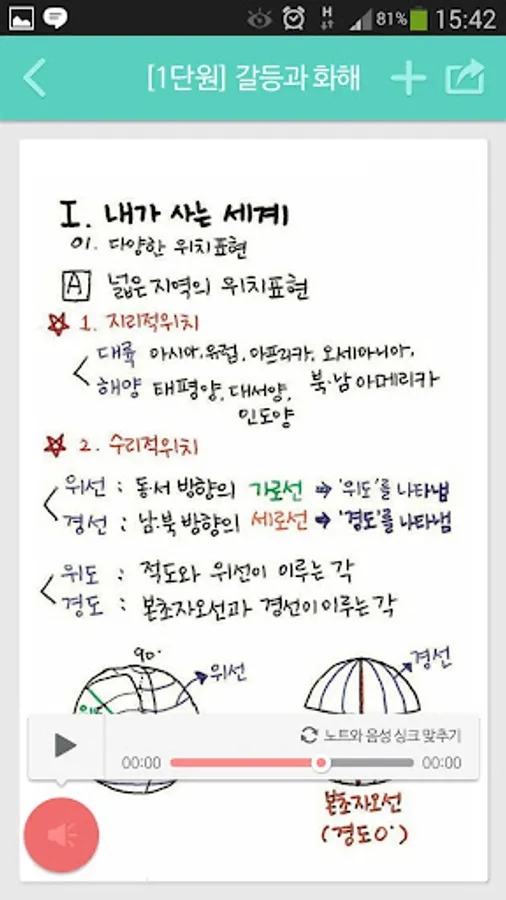 H 81% 15:42
[1단원] 갈등과 화해
I. 내가 사는 세계
01. 다양한 위치표현
A 넓은지역의 위치표현
1. 지리적위치
대륙 아시아, 유럽, 아프리카, 오세아니아,
북·남아메리카
해양 태평양, 대서양,
인도양
2. 수리적위치
위선 : 동서 방향의 가로선 ⇒ '위도'를 나타냄
경선 : 남·북 방향의 세로선 ⇒ '경도'를 나타냄
위도 : 적도와 위선이 이루는 각
경도 : 본초자오선과 경선이 이루는 각
90°
위선
경선
위도
노트와 음성 싱크 맞추기
00:00 00:00
본초자오선
(경도0°)